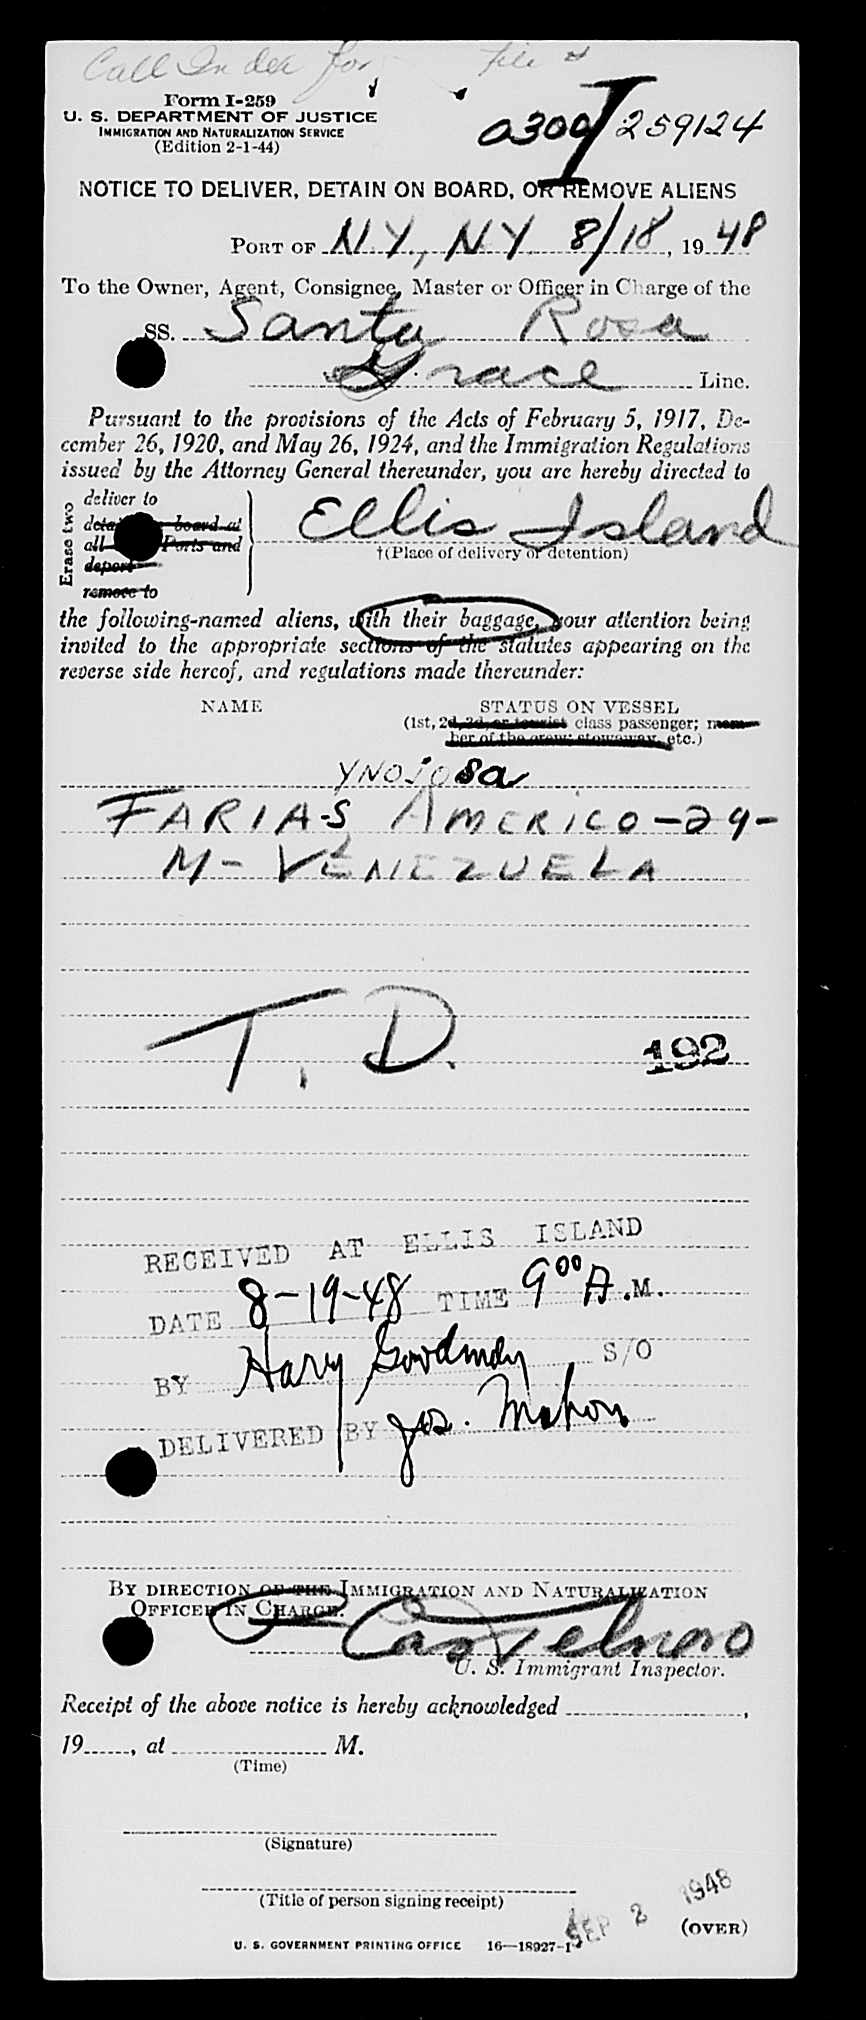 Call Index for file #
Form I-259
U. S. DEPARTMENT OF JUSTICE
IMMIGRATION AND NATURALIZATION SERVICE
(Edition 2-1-44)
0300/I 259124
NOTICE TO DELIVER, DETAIN ON BOARD, OR REMOVE ALIENS
PORT OF N.Y., N.Y. 8/18, 1948
To the Owner, Agent, Consignee, Master or Officer in Charge of the
SS. Santa Rosa
Grace Line.
Pursuant to the provisions of the Acts of February 5, 1917, De-
cember 26, 1920, and May 26, 1924, and the Immigration Regulations
issued by the Attorney General thereunder, you are hereby directed to
Erase two
deliver to
board at
all Ports and
deport
remove to
Ellis Island
†(Place of delivery or detention)
the following-named aliens, with their baggage, your attention being
invited to the appropriate sections of the statutes appearing on the
reverse side hereof, and regulations made thereunder:
NAME STATUS ON VESSEL
(1st, 2d, 3d, or tourist class passenger; mem-
ber of the crew; stowaway, etc.)
YNOJOSA
FARIAS AMERICO-29-
M- VENEZUELA
T. D.
192
RECEIVED AT ELLIS ISLAND
DATE 8-19-48 TIME 9 00 A.M.
BY Harry S/O
DELIVERED BY Jos. Mahon
BY DIRECTION OF THE IMMIGRATION AND NATURALIZATION
OFFICER IN CHARGE.
U. S. Immigrant Inspector.
Receipt of the above notice is hereby acknowledged ,
19 , at M.
(Time)
(Signature)
(Title of person signing receipt)
SEP 2 1948
(OVER)
U. S. GOVERNMENT PRINTING OFFICE 16—18927-1